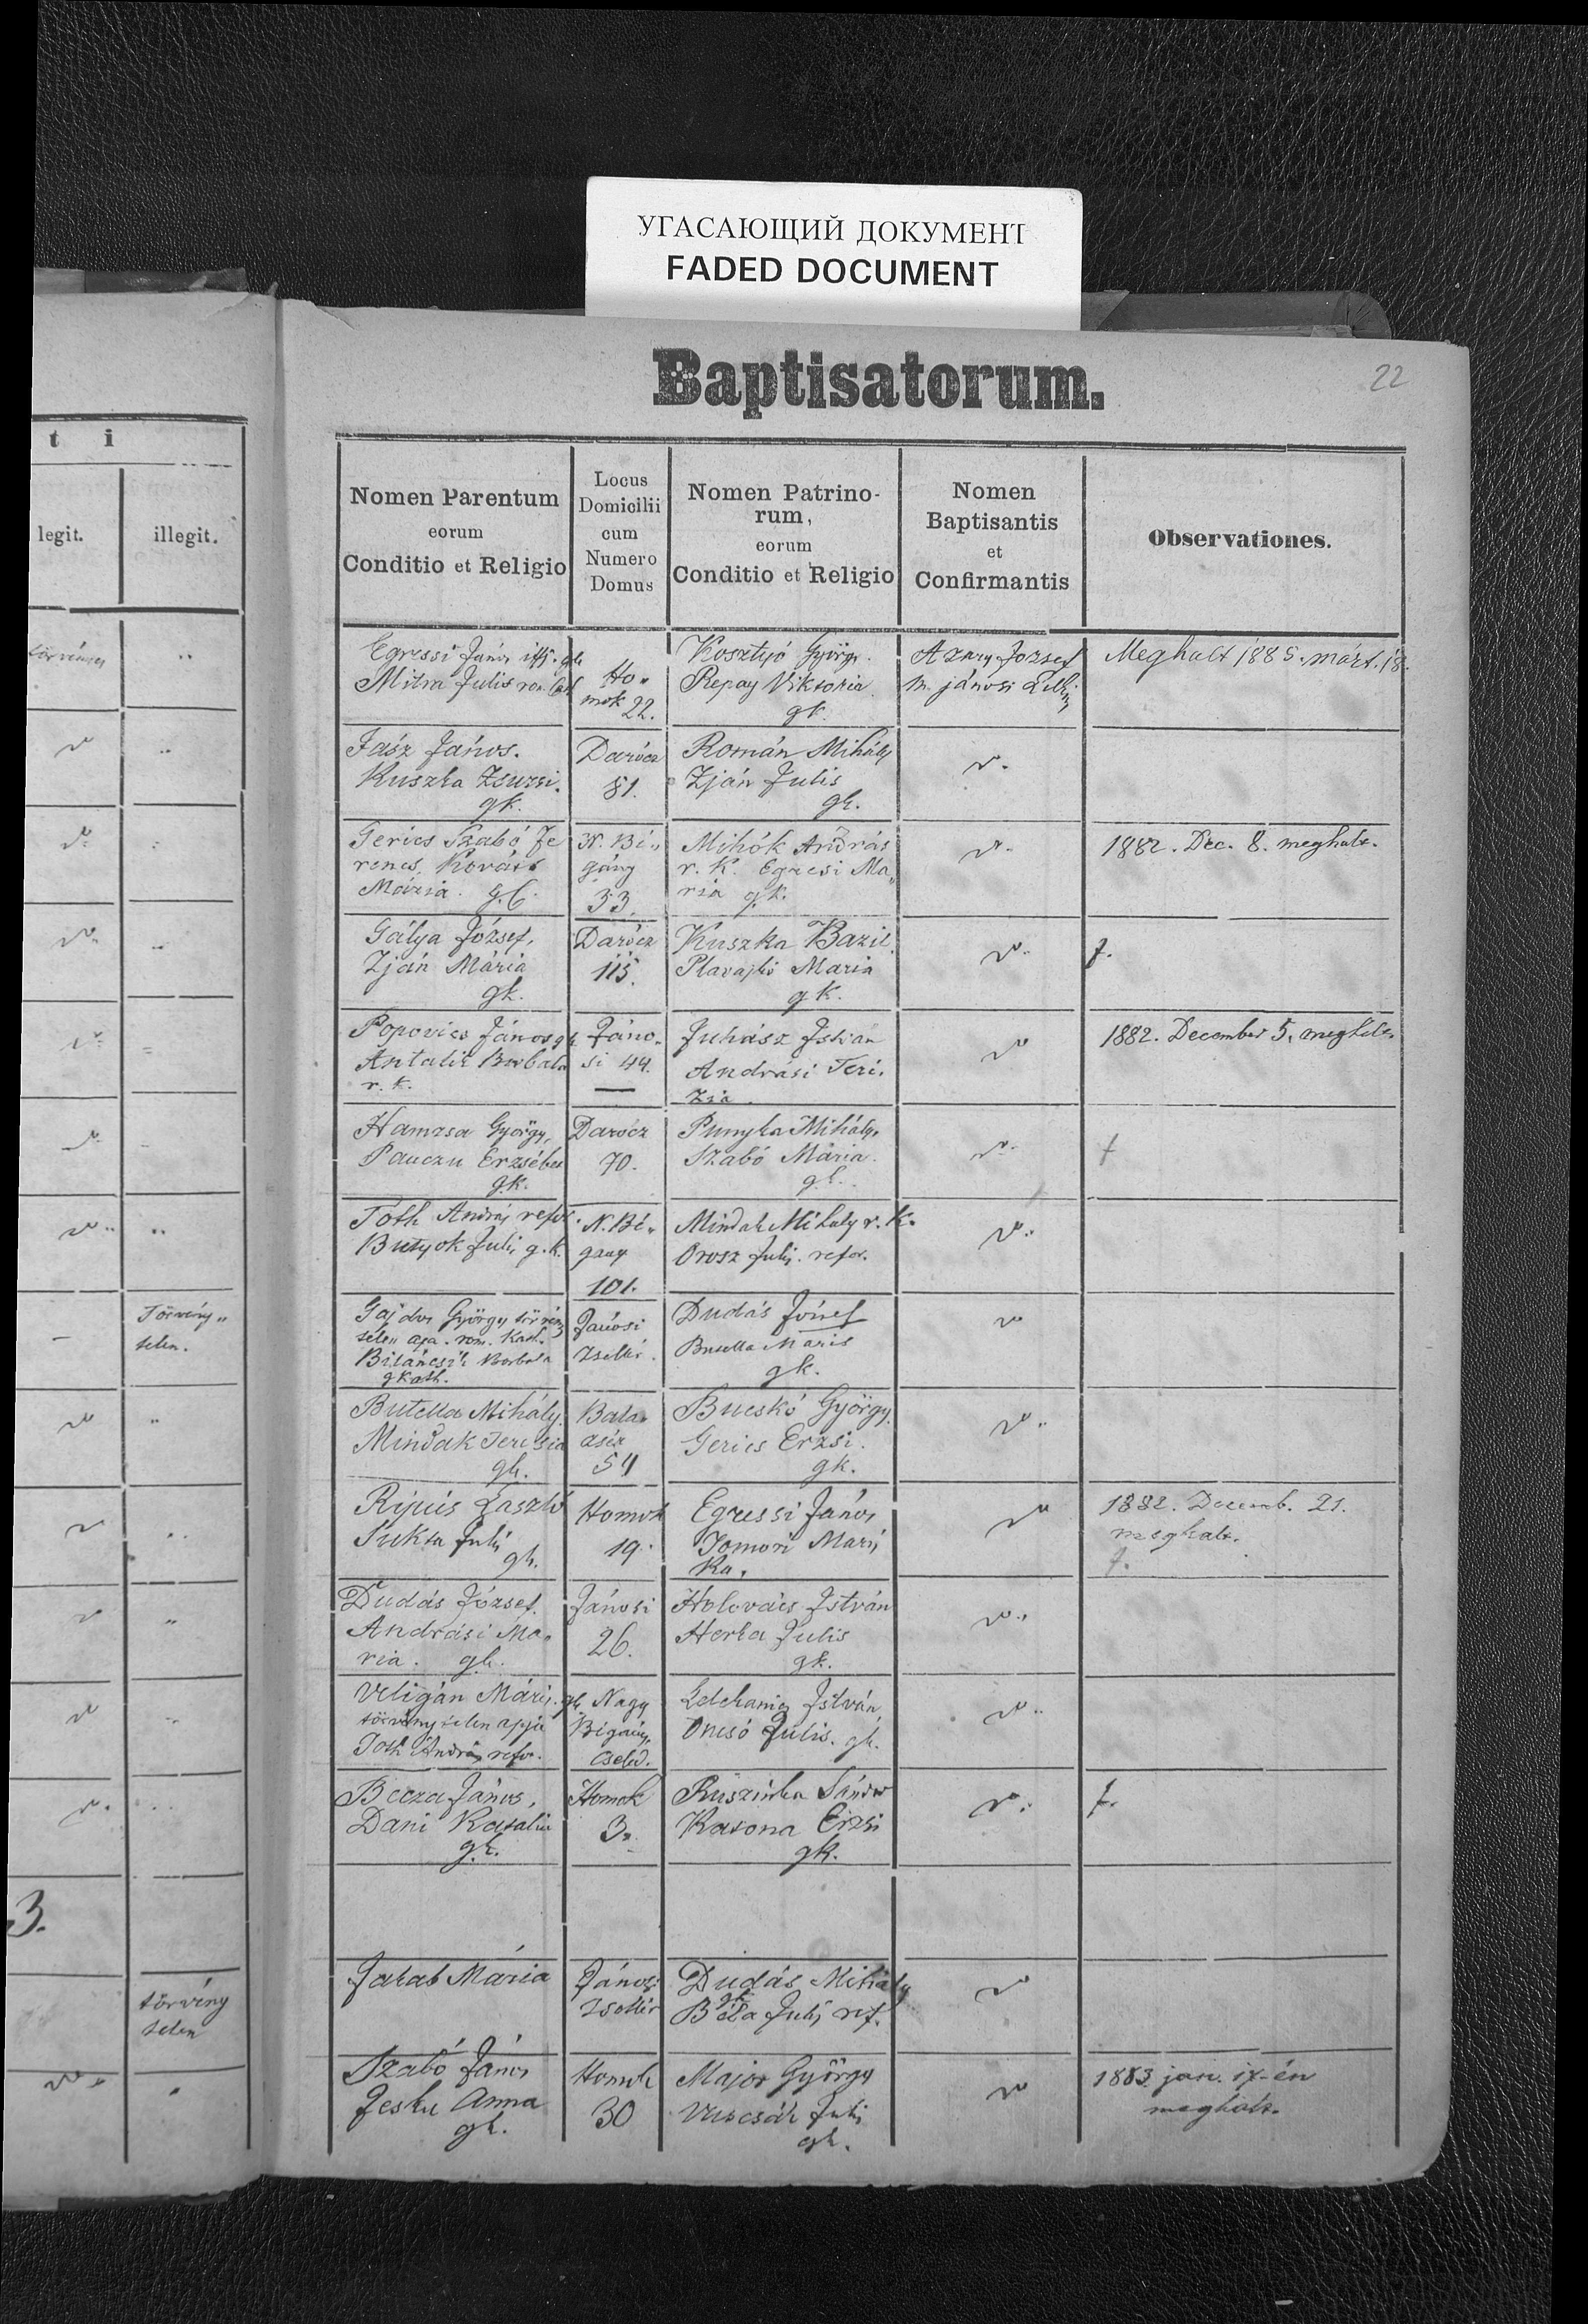 УГАСАЮЩИЙ ДОКУМЕНТ
FADED DOCUMENT
Baptisatorum.
22
t i
legit.
illegit.
Nomen Parentum
eorum
Conditio et Religio
Locus
Domicilii
cum
Numero
Domus
Nomen Patrino-
rum,
eorum
Conditio et Religio
Nomen
Baptisantis
et
Confirmantis
Observationes.
Egressi János ifj. gk
Mitra Julis rom. cath
Ho„
mok 22.
Kosztyó György.
Repay Viktoria
gk.
Azary Jozsef
m. jánosi
Meghalt 1885. márt. 18.
Fász János.
Kuszka Zsuzsi.
gk.
Darócz
81.
Román Mihály
Zján Julis
gk.
Gerics Szabó Fe
rencs, Kováts
Mária. g.k.
N. Bé„
gány
33.
Mihók András
r. K. Egresi Ma„
ria g.k.
1882. Dec. 8. meghalt.
Gálya József,
Zján Mária
gk.
Darócz
115.
Kuszka Bazil
Plavajkó Maria
gk.
†.
Popovics János gk.
Antalik Borbala
r. k.
Jáno„
si 44.
Juhász István
Andrási Teré„
zia.
1882. December 5. meghalt.
Hamzsa György,
Pauczu Erzsébet
gk.
Darócz
70.
Punyka Mihály,
Szabó Mária.
gk.
†
Tóth András refor.
Butyok Julis g.k.
N. Bé„
gany
101.
Mindak Mihaly r. k.
Orosz Julis. refor.
Törvény„
telen.
Gajdos György törvény
telen apa. rom. Kath.
Bilancsik Borbala
gkath.
Jánosi
Zsellér.
Dudás József
Butella Maris
gk.
Butella Mihály.
Mindak Terezia
gk.
54
Bucskó György.
Gerics Erzsi.
gk.
László
Julis
gk.
Homok
19.
Egressi János
Tomori Maris
ka.
1882. Decemb. 21.
meghalt.
†.
Dudás József.
Andrási Ma„
ria. gk.
Jánosi
26.
Holovács István
Herka Julis
gk.
Veligán Máris. gk
törvénytelen apja
Toth András refor.
Nagy
Bégány,
Cseléd.
István,
Oncsó Julis. gk.
Becza János,
Dani Katalin
gk.
Homok
3.
Ruszinka Sándor
Katona Erzsi
gk.
†.
3.
törvény
telen
Jakab Mária
Jánosi
Zsellér
Dudás Mihály
gk
Béla Julis ref.
Szabó János
Jesku Anna
gk.
Homok
30
Major György
Julis
gk.
1883. jan. ix-én
meghalt.